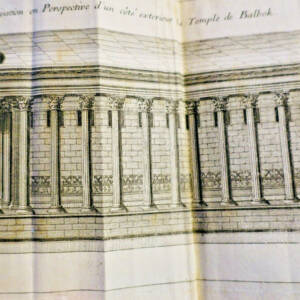 en Perspective d'un côté exterieur Temple de Balbek